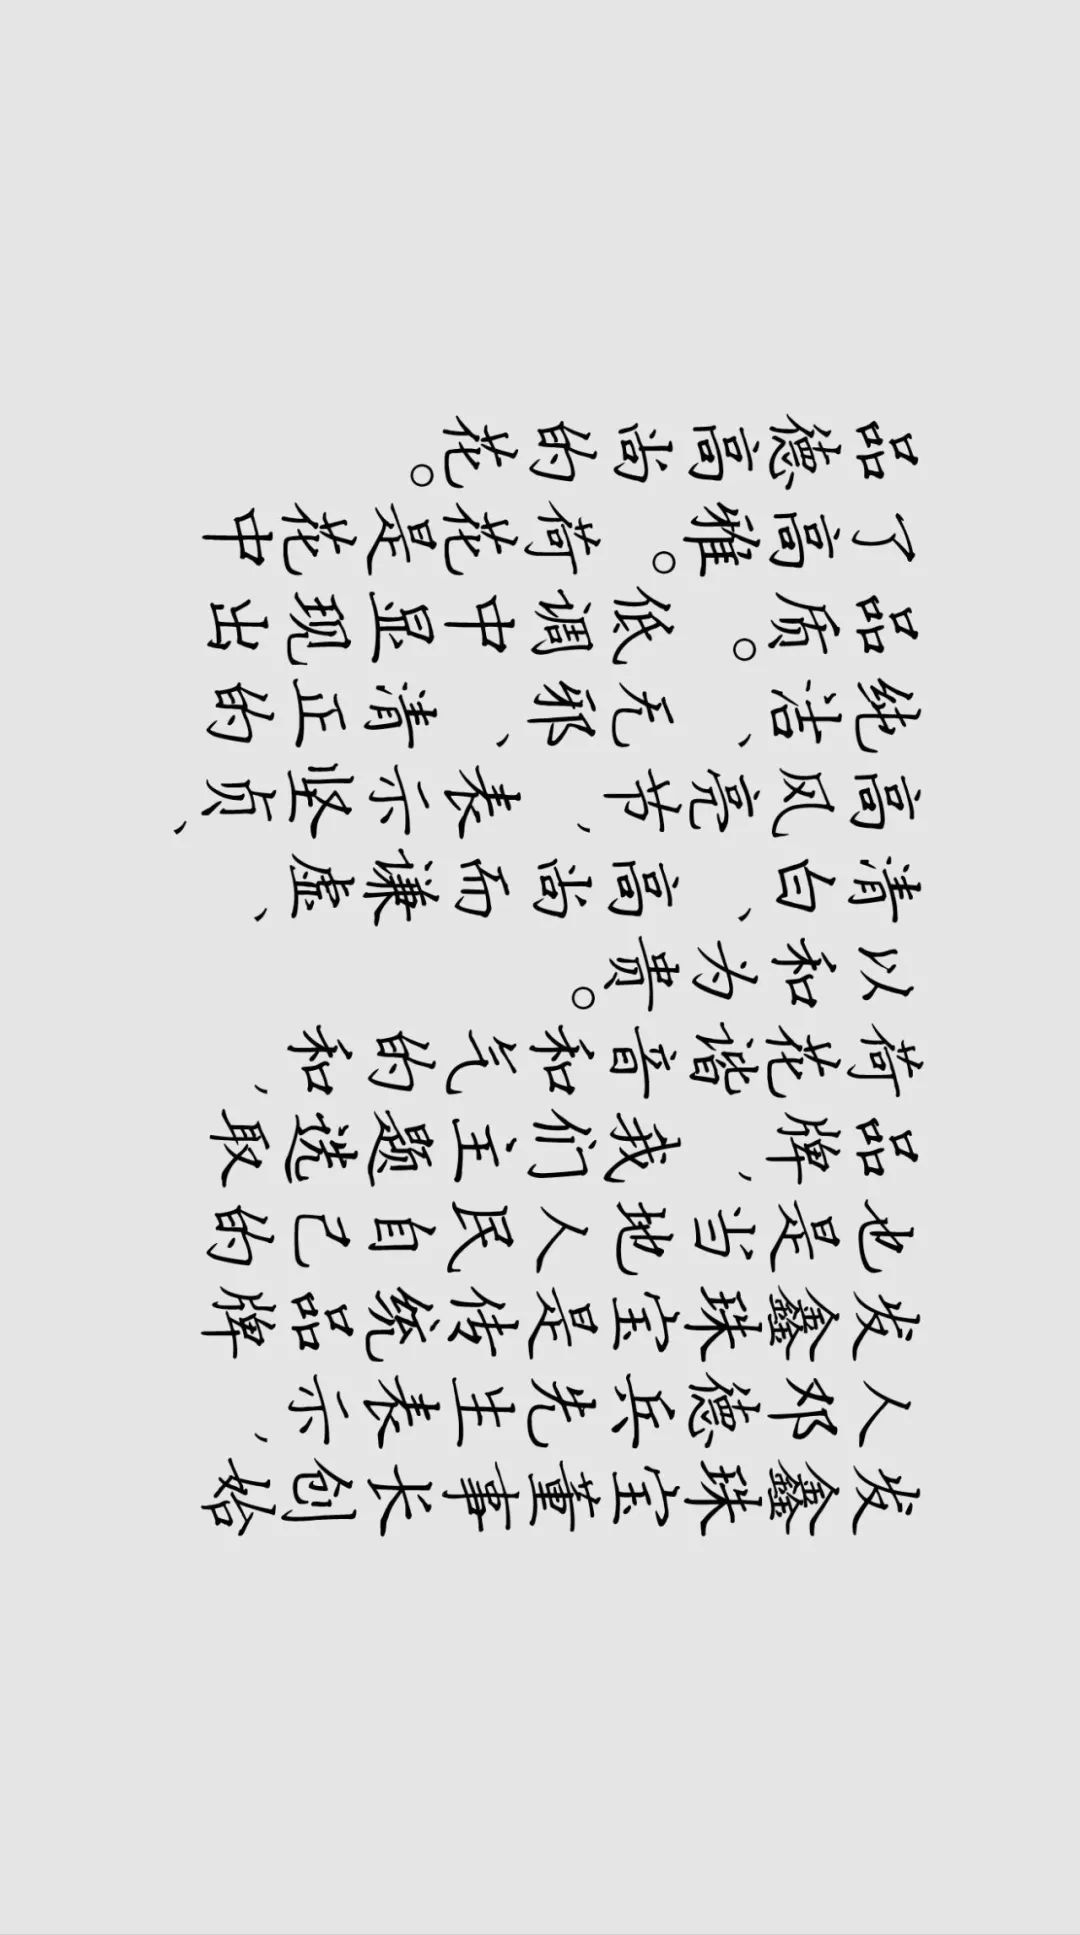 发鑫珠宝董事长创始
人邓德兵先生表示，
发鑫珠宝是传统品牌
也是当地人民自己的
品牌，我们主题选取
荷花谐音和气的和，
以和为贵。
清白、高尚而谦虚、
高风亮节，表示坚贞、
纯洁、无邪、清正的
品质。低调中显现出
了高雅。荷花是花中
品德高尚的花。